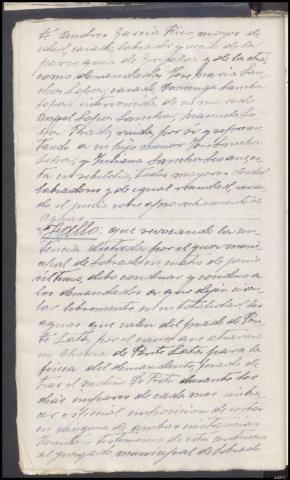 te Andres Garcia Rico, mayor de
edad, casado, labrador y vecino de la
parroquia de Grijalba y de la otra,
como demandados Jose Maria San-
chez Lopez, casado, Dominga Sanchez
Lopez, intervenida de su marido
Angel Lopez Sanchez; Manuela Lo-
pez Prado, viuda por sí y represen-
tando a su hijo menor Sanchez
Lopez, y Juliana Sanchez
en rebeldia, todos mayores de edad,
labradores y de igual vecindad, versan-
do el juicio sobre aprovechamiento de
aguas.
=Fallo: que revocando la sen-
tencia dictada por el Juez muni-
cipal de Sobrado en cuatro de junio
último, debo condenar y condeno a
los demandados a que dejen correr
libremente en su totalidad las
aguas que salen del prado de Pon-
te Lata, por el cauce que atraviesa
de Ponte Lata para la
finca del demandante, prado de
tras el molino de durante los
dias impares de cada mes sin ha-
cer especial imposicion de costas
en ninguna de ambas instancias.
Remitase testimonio de esta sentencia
al juzgado municipal de Sobrado